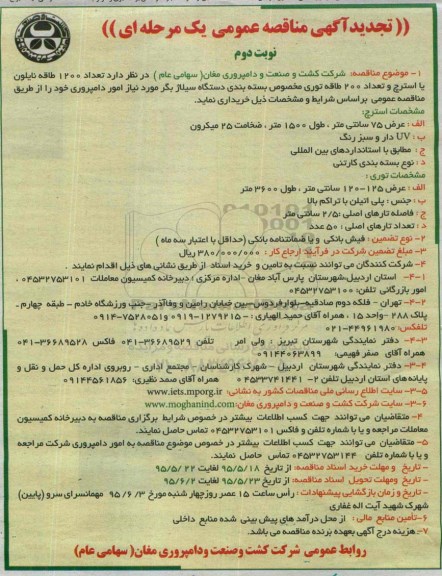 (( تجدید آگهی مناقصه عمومی یک مرحله ای ))
نوبت دوم
۱- موضوع مناقصه: شرکت کشت و صنعت و دامپروری مغان( سهامی عام ) در نظر دارد تعداد ۱۲۰۰ طاقه نایلون
یا استرچ و تعداد ۲۰۰ طاقه توری مخصوص بسته بندی دستگاه سیلاژ بگر مورد نیاز امور دامپروری خود را از طریق
مناقصه عمومی براساس شرایط و مشخصات ذیل خریداری نماید.
مشخصات استرچ:
الف : عرض ۷۵ سانتی متر ، طول ۱۵۰۰ متر ، ضخامت ۲۵ میکرون
ب : UV دار و سبز رنگ
ج : مطابق با استانداردهای بین المللی
د : نوع بسته بندی کارتنی
مشخصات توری :
الف : عرض ۱۲۵-۱۲۰ سانتی متر ، طول ۳۶۰۰ متر
ب : جنس : پلی اتیلن با تراکم بالا
ج : فاصله تارهای اصلی :۲/۵ سانتی متر
د : تعداد تارهای اصلی : ۵۰ عدد
۲- نوع تضمین : فیش بانکی و یا ضمانتنامه بانکی (حداقل با اعتبار سه ماه )
۳- مبلغ تضمین شرکت در فرآیند ارجاع کار : ۳۸۰/۰۰۰/۰۰۰ ریال
۴- شرکت کنندگان می توانند نسبت به تامین و خرید اسناد از طریق نشانی های ذیل اقدام نمایند .
۱-۴- استان اردبیل-شهرستان پارس آباد مغان - اداره مرکزی ؛ دبیرخانه کمیسیون معاملات ۰۴۵۳۲۷۵۳۱۰۱ ،
امور بازرگانی تلفن: ۰۴۵۳۲۷۵۳۱۰۰
۲-۴- تهران - فلکه دوم صادقیه-بلوارفردوس-بین خیابان رامین و وفاآذر -جنب ورزشگاه خادم - طبقه چهارم -
پلاک ۲۸۸ -واحد ۱۵ ، همراه آقای حمید الهیاری : ۱۲۷۹۲۱۵-۰۹۱۹ و ۷۵۲۸۰۵۱-۰۹۱۴
تلفکس: ۴۴۹۶۱۹۸۰-۰۲۱
۳-۴- دفتر نمایندگی شهرستان تبریز . ولی امر تلفن ۳۶۶۸۹۵۲۹-۰۴۱ فاکس ۳۶۶۸۹۵۲۸-۰۴۱
همراه آقای صفر فهیمی: ۰۹۱۴۴۰۶۳۸۹۹
۴-۴- دفتر نمایندگی شهرستان اردبیل - شهرک کارشناسان - مجتمع اداری - روبروی اداره کل حمل و نقل و
پایانه های استان اردبیل تلفن ۲- ۰۴۵۳۳۷۴۱۴۴۱ همراه آقای صمد نظیری: ۰۹۱۴۴۵۶۱۸۵۶
۵-۴- سایت اطلاع رسانی ملی مناقصات کشور به نشانی: www.iets.mporg.ir
۶-۴- سایت شرکت کشت و صنعت و دامپروری مغان: www.moghanind.com
۴- متقاضیان می توانند جهت کسب اطلاعات بیشتر در خصوص شرایط برگزاری مناقصه به دبیرخانه کمیسیون
معاملات مراجعه و یا با شماره تلفن و فاکس ۰۴۵۳۲۷۵۳۱۰۱ تماس حاصل نمایند.
۵- متقاضیان می توانند جهت کسب اطلاعات بیشتر در خصوص موضوع مناقصه به امور دامپروری شرکت مراجعه
و یا با شماره تلفن ۰۴۵۳۲۷۵۳۱۴۴ تماس حاصل نمایند.
- تاریخ و مهلت خرید اسناد مناقصه: از تاریخ ۹۵/۵/۱۸ لغایت ۹۵/۵/۲۲
- تاریخ ومهلت تحویل اسناد مناقصه: از تاریخ ۹۵/۵/۲۳ لغایت ۹۵/۶/۲
- تاریخ و زمان بازگشایی پیشنهادات : رأس ساعت ۱۵ عصر روزچهار شنبه مورخ ۹۵/۶/۳ مهمانسرای سرو (پایین)
شهرک شهید آیت اله غفاری
۶-تامین منابع مالی : از محل درآمد های پیش بینی شده منابع داخلی
۷-هزینه درج آگهی بعهده برنده مناقصه می باشد.
روابط عمومی شرکت کشت وصنعت ودامپروری مغان( سهامی عام )